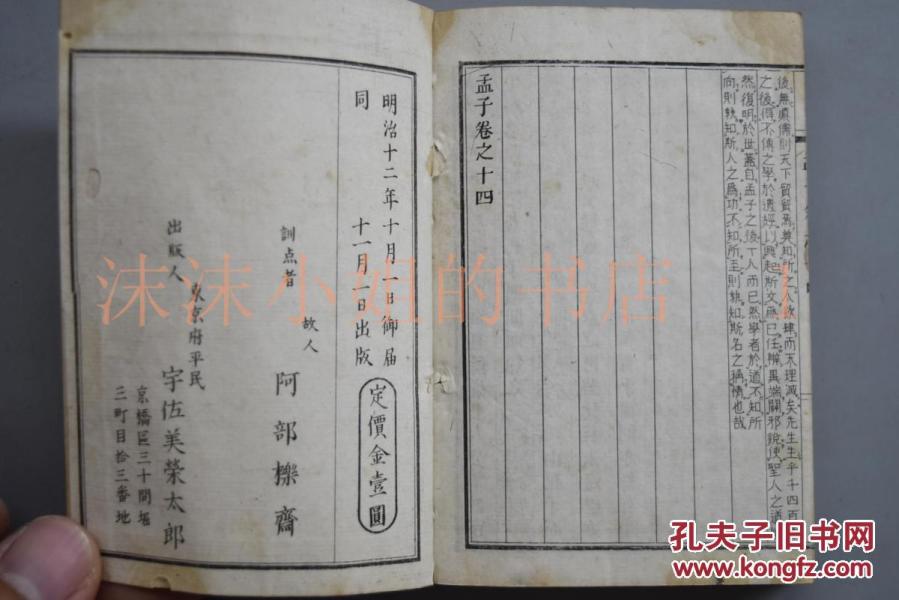 後無眞儒則天下貿貿焉莫知所之人欲肆而天理滅矣先生生乎千四百
之後得不傳之學於遺經以興起斯文爲己任辨異端闢邪說使聖人之道
然復明於世蓋自孟子之後一人而已然學者於道不知所
向則孰知斯人之爲功不知所至則孰知斯名之稱情也哉
孟子卷之十四
明治十二年十月一日御届
同
十一月 日出版
定價金壹圓
訓点者
故人
阿部櫟齋
出版人
東京府平民
宇佐美榮太郎
京橋區三十間堀
三町目拾三番地
沫沫小姐的书店
孔夫子旧书网
www.kongfz.com